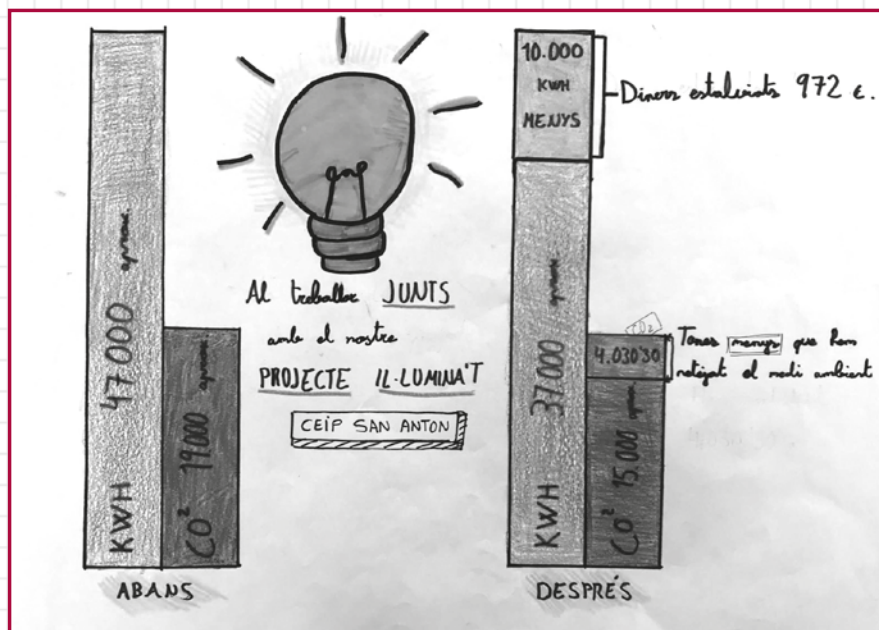 47.000 aprox.
KWH
19.000 aprox.
CO²
ABANS
Al treballar JUNTS
amb el nostre
PROJECTE IL·LUMINA'T
CEIP SAN ANTON
10.000
KWH
MENYS
Diners estalviats 972 €.
37.000 aprox.
KWH
CO₂
4.030'30
Tones menys que hem
netejat el medi ambient
15.000 aprox.
CO²
DESPRÉS